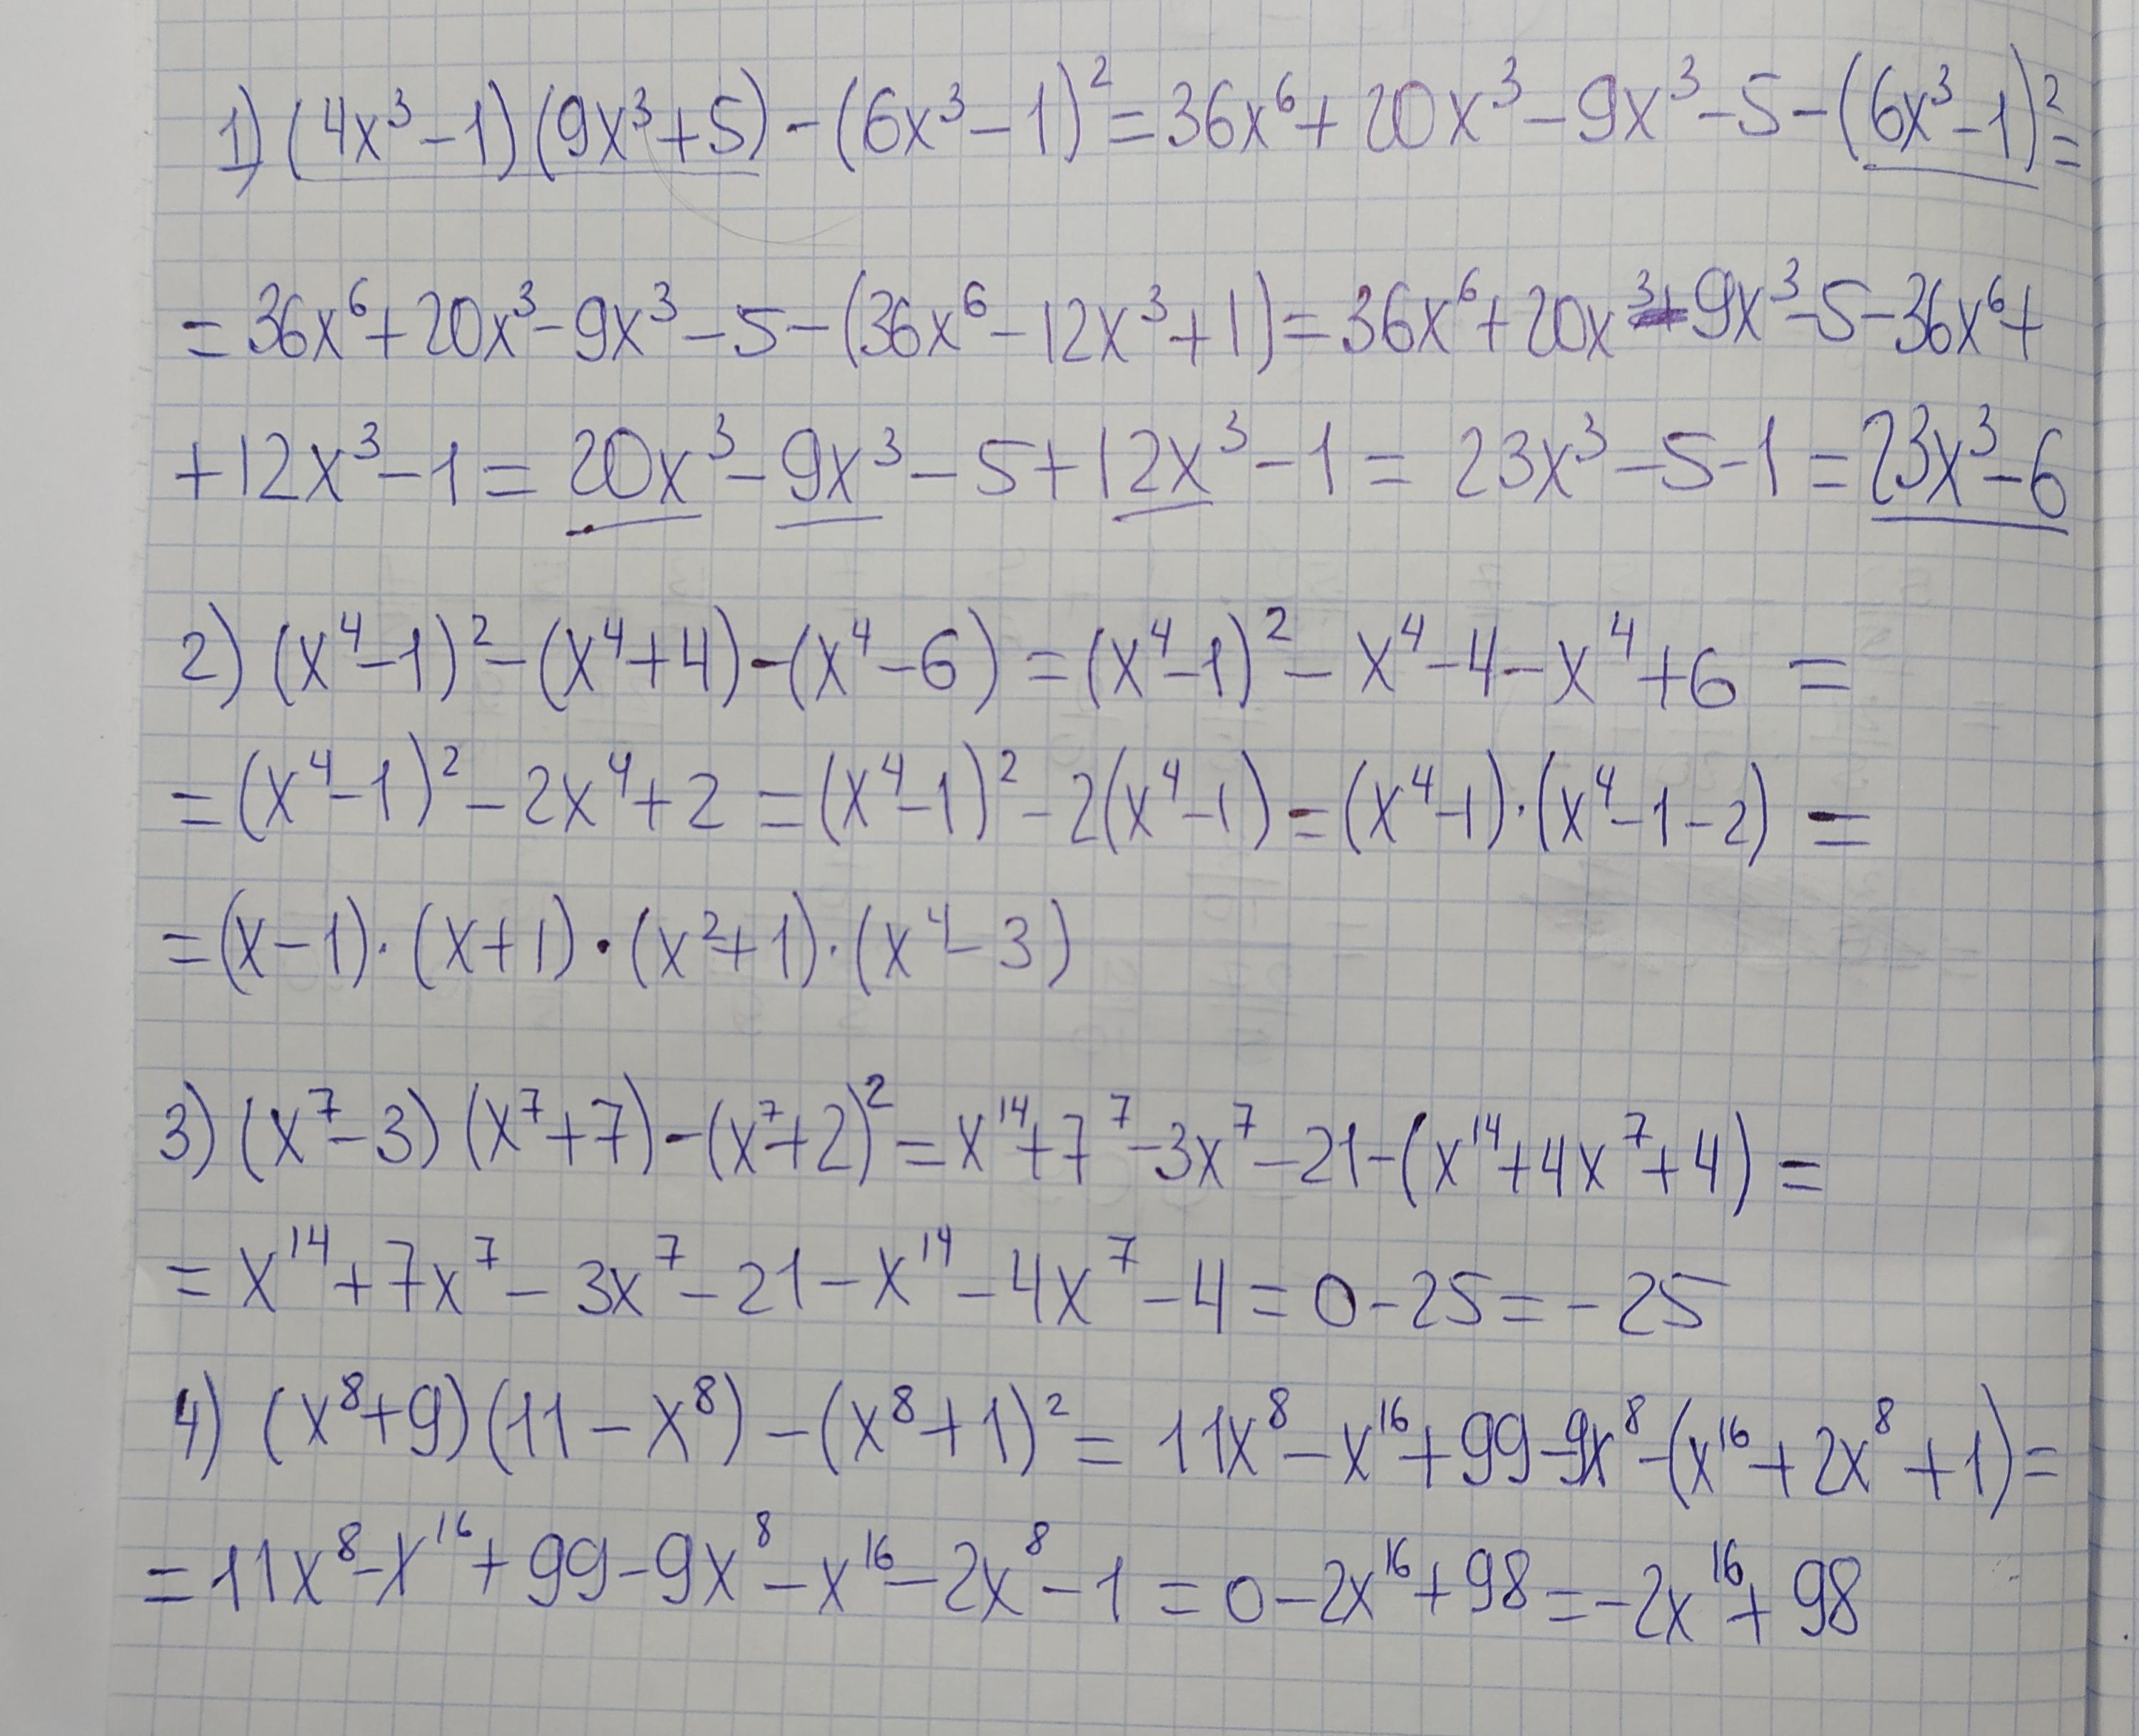 1) (4x³-1)(9x³+5)-(6x³-1)²=36x⁶+20x³-9x³-5-(6x³-1)²=
=36x⁶+20x³-9x³-5-(36x⁶-12x³+1)=36x⁶+20x³-9x³-5-36x⁶+
+12x³-1=20x³-9x³-5+12x³-1=23x³-5-1=23x³-6
2) (x⁴-1)²-(x⁴+4)-(x⁴-6)=(x⁴-1)²-x⁴-4-x⁴+6=
=(x⁴-1)²-2x⁴+2=(x⁴-1)²-2(x⁴-1)=(x⁴-1)·(x⁴-1-2)=
=(x-1)·(x+1)·(x²+1)·(x⁴-3)
3) (x⁷-3)(x⁷+7)-(x⁷+2)²=x¹⁴+7⁷-3x⁷-21-(x¹⁴+4x⁷+4)=
=x¹⁴+7x⁷-3x⁷-21-x¹⁴-4x⁷-4=0-25=-25
4) (x⁸+9)(11-x⁸)-(x⁸+1)²=11x⁸-x¹⁶+99-9x⁸-(x¹⁶+2x⁸+1)=
=11x⁸-x¹⁶+99-9x⁸-x¹⁶-2x⁸-1=0-2x¹⁶+98=-2x¹⁶+98